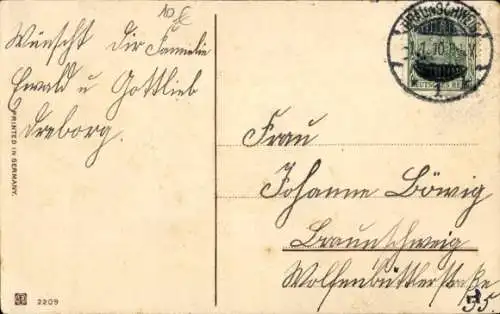 10 €
Wünscht Dir Fammelie
Ewald u Gottlieb
Dreborg.
PRINTED IN GERMANY.
2209
BRAUNSCHWEIG
1.10
1
Frau
Johanne Böwig
Braunschweig
Wolfenbüttlerstraße
35.